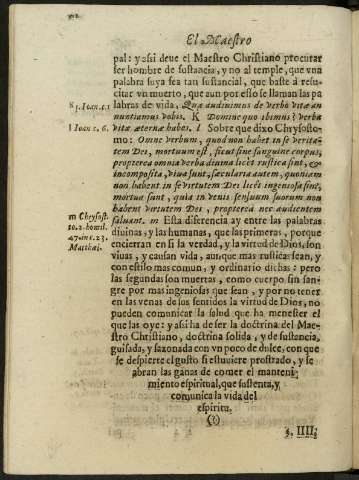 El Maestro
pal: y assi deue el Maestro Christiano procurar
ser hombre de sustancia, y no al temple, que vna
palabra suya sea tan sustancial, que baste à resu-
citar vn muerto, que aun por esso se llaman las pa
labras de vida, Quæ audiuimus de verbo vitæ an
nuntiamus vobis. K Domine quo ibimus? verba
vitæ æternæ habes. l Sobre que dixo Chrysosto-
mo: Omne verbum, quod non habet in se verita-
tem Dei, mortuum est, sicut sine sanguine corpus,
propterea omnia verba diuina licèt rustica sint, &
incomposita, viua sunt, sæcularia autem, quoniam
non habent in se virtutem Dei licèt ingeniosa sint,
mortua sunt, quia in venis sensuum suorum non
habent virtutem Dei, propterea nec audientem
saluant. m Esta diferencia ay entre las palabras
diuinas, y las humanas, que las primeras, porque
encierran en si la verdad, y la virtud de Dios, son
viuas, y causan vida, aunque mas rusticas sean, y
con estilo mas comun, y ordinario dichas: pero
las segundas son muertas, como cuerpo sin san-
gre por mas ingeniosas que sean, y por no tener
en las venas de sus sentidos la virtud de Dios, no
pueden comunicar la salud que ha menester el
que las oye: y assi ha de ser la doctrina del Mae-
stro Christiano, doctrina solida, y de sustancia,
guisada, y sazonada con vn poco de dulce, con que
se despierte el gusto si estuuiere prostrado, y se
abran las ganas de comer el manteni-
miento espiritual, que sustenta, y
comunica la vida del
espiritu.
(?)
K 1. Ioan. c. 1
l Ioan c. 6.
m Chrysost.
to. 2. homil.
47. in c. 23.
Matthæi.
§. IIII.